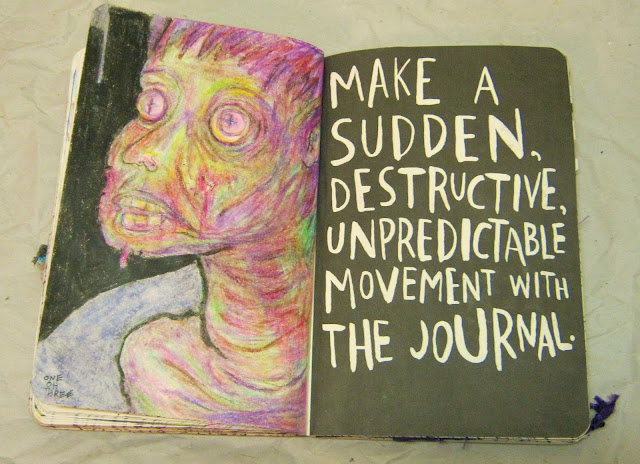 ONE
OH
THREE
MAKE A
SUDDEN,
DESTRUCTIVE,
UNPREDICTABLE
MOVEMENT WITH
THE JOURNAL.